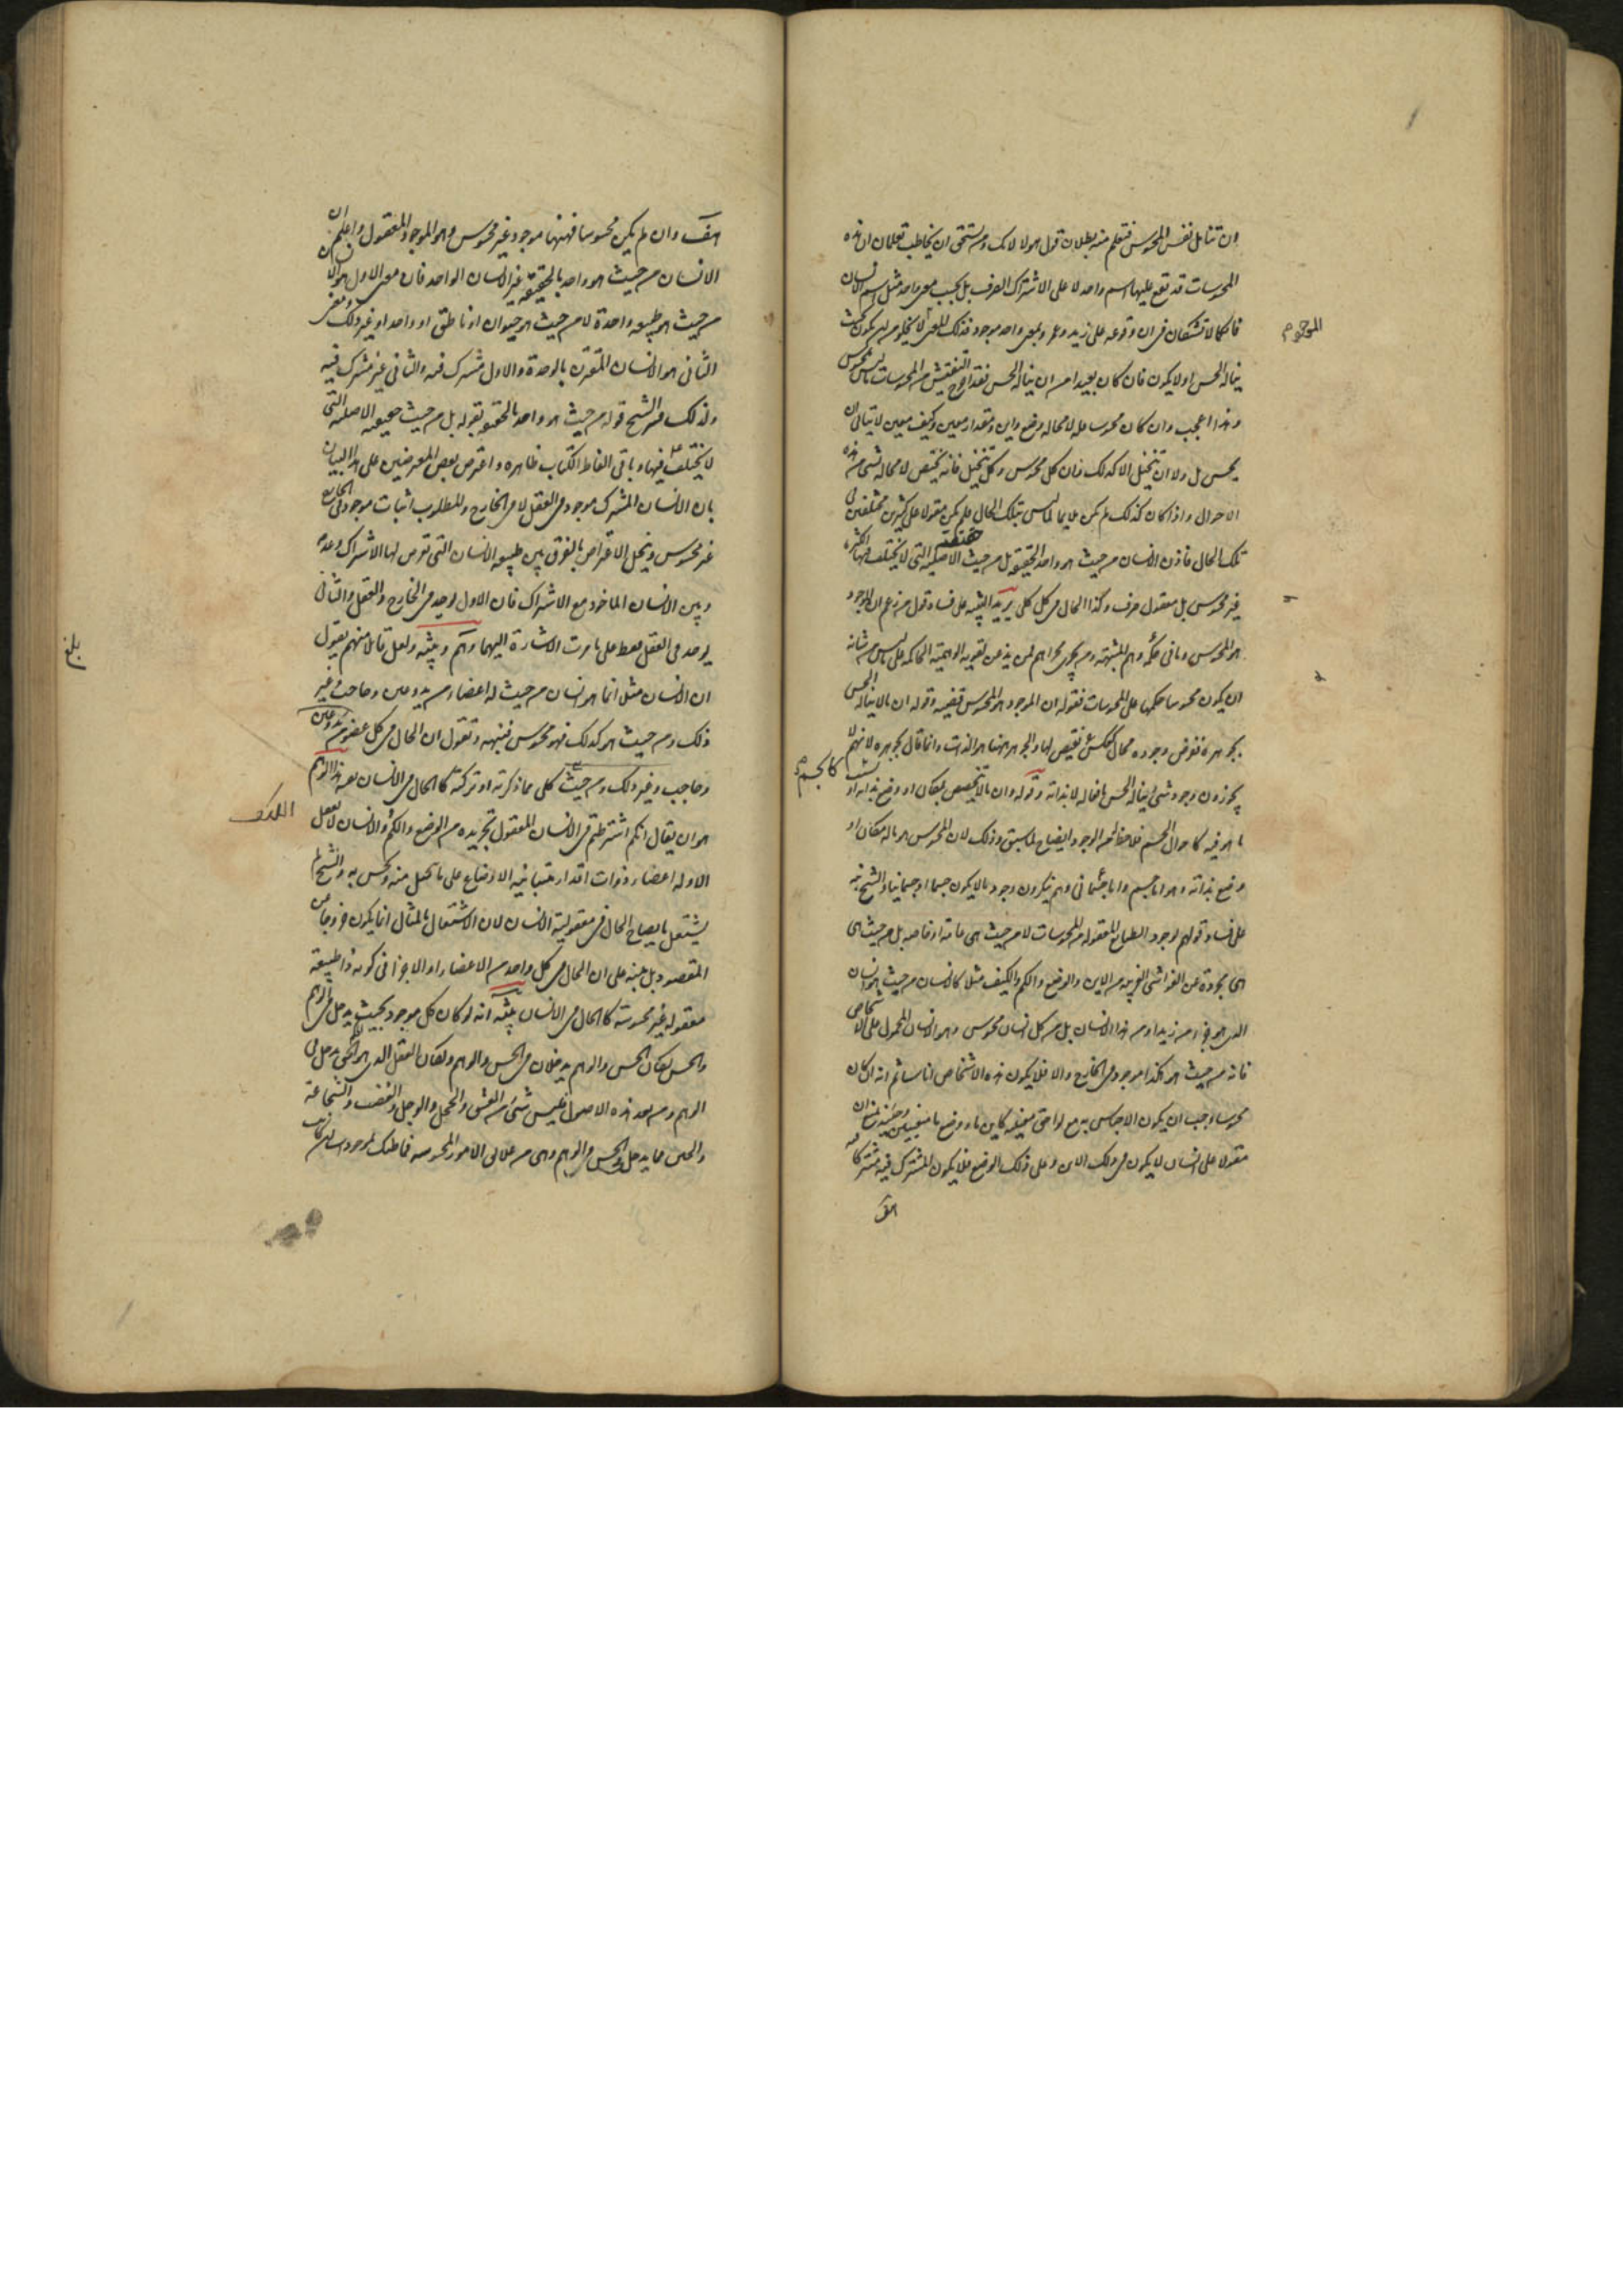 وان تتامل نفس المحسوس فتعلم منه بطلان قول هولا لانك ومن يستحق ان يخاطب تعلمان ان هذه
المحسوسات قد تقع عليها اسم واحد لا على الاشتراك الصرف بل بحسب معنى واحد مثل اسم الانسان
فانكما لا تشكان فى ان وقوعه على زيد وعمرو بمعنى واحد موجود فذلك المعنى لا يخلو من ان يكون بحيث
الموجود
يناله الحس او لا يكون فان كان بعيدا من ان يناله الحس فقد اخرج التفتيش من المحسوسات ما ليس بمحسوس
وهذا اعجب وان كان محسوسا فله لا محاله وضع واين ومقدار معين وكيف معين لا يتاتى ان
يحس بل ولا ان يتخيل الا كذلك فان كل محسوس وكل متخيل فانه يتخصص لا محاله بشى من هذه
الاحوال واذا كان كذلك لم يكن ملايما لما ليس بتلك الحال فلم يكن مقولا على كثيرين مختلفين فى
تلك الحال فاذن الانسان من حيث هو واحد الحقيقة بل من حيث حقيقته الاصلية التى لا يختلف فيها الكثرة
غير محسوس بل معقول صرف وكذا الحال فى كل كلى يريد التنبيه على فساد قول من زعم ان الموجود
هو المحسوس وما فى حكمه وهم المشبهة ومن يجرى مجراهم لمن يذعن لقوته الوهمية الحاكمة على ما ليس من شانه
ان يكون محسوسا حكمها على المحسوسات فقوله ان الموجود هو المحسوس قضية وقوله ان ما لا يناله الحس
بجوهره ففرض وجوده محال كعكس نقيض لها والجوهر ههنا هو الذات وانما قال بجوهره لانهم لا
يجوزون وجود شى يناله الحس بافعاله لا بذاته وقوله وان ما لا يتخصص بمكان او وضع بذاته او
بسبب
كالجسم
ما هو فيه كاحوال الجسم فلا حظ له من الوجود ايضاح لما سبق وذلك لان المحسوس هو ما له مكان او
وضع بذاته وهو اما جسم واما جسمانى وهم ينكرون وجود ما لا يكون جسما او جسمانيا والشيخ نبه
على فساد قولهم بوجود الطبايع المعقوله من المحسوسات لا من حيث هى عامة او خاصة بل من حيث هى
هى مجردة عن الغواشى الغريبة من الاين والوضع والكم والكيف مثلا كالانسان من حيث هو انسان
الذى هو جزء من زيد او من هذا الانسان بل من كل انسان محسوس وهو الانسان المحمول على الاشخاص
فانه من حيث هو هكذا موجود فى الخارج والا فلا يكون هذه الاشخاص اناسا ثم انه ان كان
محسوسا وجب ان يكون الاحساس به مع لواحق معينة كاين ما ووضع ما معينين وحينئذ يمتنع ان
مقولا على انسان لا يكون فى ذلك الاين وعلى ذلك الوضع فلا يكون المشترك فيه مشتركا فيه
هف
هف وان لم يكن محسوسا فههنا موجود غير محسوس وهو الموجود المعقول واعلم ان
الانسان من حيث هو واحد بالحقيقة غير الانسان الواحد فان معنى الاول هو الانسان
من حيث هو طبيعة واحدة لا من حيث هو حيوان او ناطق او واحد او غير ذلك ومعنى
الثانى هو الانسان المقترن بالوحدة والاول مشترك فيه والثانى غير مشترك فيه
ولذلك فسر الشيخ قوله من حيث هو واحد بالحقيقة بقوله بل من حيث حقيقته الاصلية التى
لا يختلف فيها وباقى الفاظ الكتاب ظاهره واعترض بعض المعترضين على هذا البيان
بان الانسان المشترك موجود فى العقل لا فى الخارج والمطلوب اثبات موجود فى الخارج
غير محسوس وينحل الاعتراض بالفرق بين طبيعة الانسان التى تعرض لها الاشتراك وعدمه
وبين الانسان الماخوذ مع الاشتراك فان الاول يوجد فى الخارج والعقل والثانى
يوجد فى العقل فقط على ما مرت الاشارة اليهما وهم وتنبيه ولعل قايلا منهم يقول
ان الانسان مثلا انما هو انسان من حيث له اعضاء من يد وعين وحاجب وغير
ذلك ومن حيث هو كذلك فهو محسوس فننبهه ونقول ان الحال فى كل عضو من يد وعين
وحاجب وغير ذلك ومن حيث كلى مما ذكرته او تركته كالحال فى الانسان نفسه هذا الوهم
هو ان يقال انكم اشترطتم فى الانسان المعقول تجريده من الوضع والكم والانسان لا يعقل
الا وله اعضاء ذوات اقدار متباينة الاوضاع على ما يتخيل منه ويحس به والشيخ لم
يشتغل بايضاح الحال فى معقولية الانسان لان الاشتغال بالمثال انما يكون خروجا عن
المقصود بل نبه على ان الحال فى كل واحد من الاعضاء او الاجزا فى كونه ذا طبيعة
معقولة غير محسوسة كالحال فى الانسان تنبيه انه لو كان كل موجود بحيث يدخل فى الوهم
والحس لكان الحس والوهم يدخلان فى الحس والوهم ولكان العقل الذى هو الحكم الحق يدخل فى
الوهم ومن بعد هذه الاصول فليس شى من العشق والخجل والوجل والغضب والشجاعة
والجبن مما يدخل فى الحس والوهم وهى من علايق الامور المحسوسة فما ظنك بموجودات ان كانت
بلغ